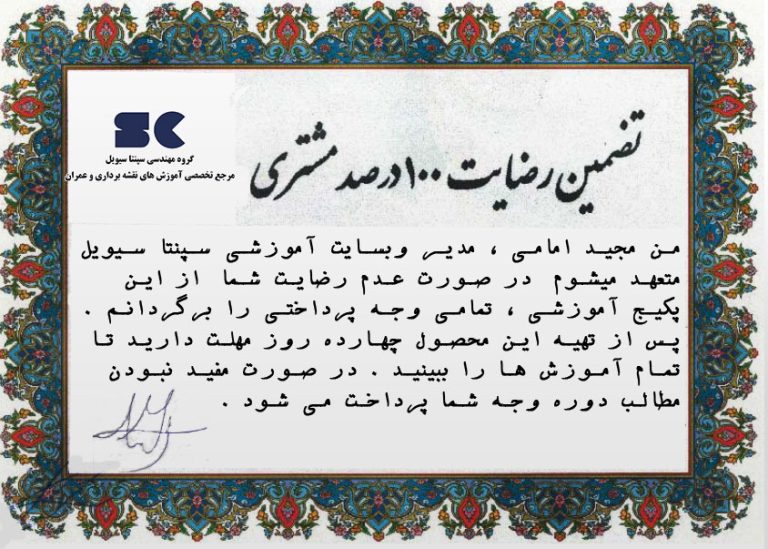 SC
گروه مهندسی سپنتا سیویل
مرجع تخصصی آموزش های نقشه برداری و عمران
تضمین رضایت ۱۰۰ درصد مشتری
من مجید امامی ، مدیر وبسایت آموزشی سپنتا سیویل
متعهد میشوم در صورت عدم رضایت شما از این
پکیج آموزشی ، تمامی وجه پرداختی را برگردانم .
پس از تهیه این محصول چهارده روز مهلت دارید تا
تمام آموزش ها را ببینید . در صورت مفید نبودن
مطالب دوره وجه شما پرداخت می شود .